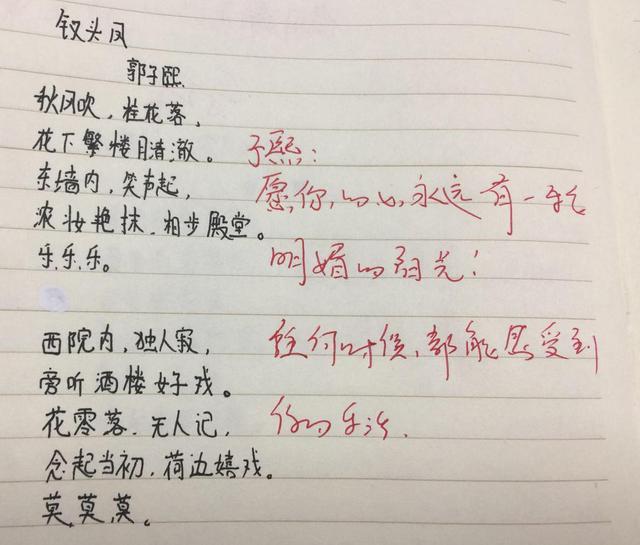 钗头凤
郭子熙
秋风吹，桂花落，
花下繁楼月清澈。
东墙内，笑声起，
浓妆艳抹，相步殿堂。
乐，乐，乐。
西院内，独人寂，
旁听酒楼好戏。
花零落，无人记，
念起当初，荷边嬉戏。
莫，莫，莫。
子熙：
愿你的心永远有一
明媚的阳光！
任何时候，都能感受到
你的